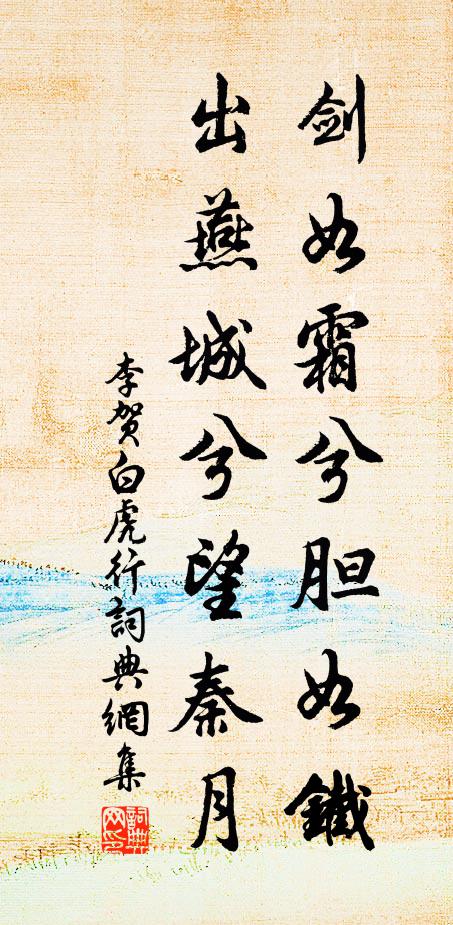 剑如霜兮胆如鐵
出燕城兮望秦月
李贺白虎行詞典網集
詞典网印